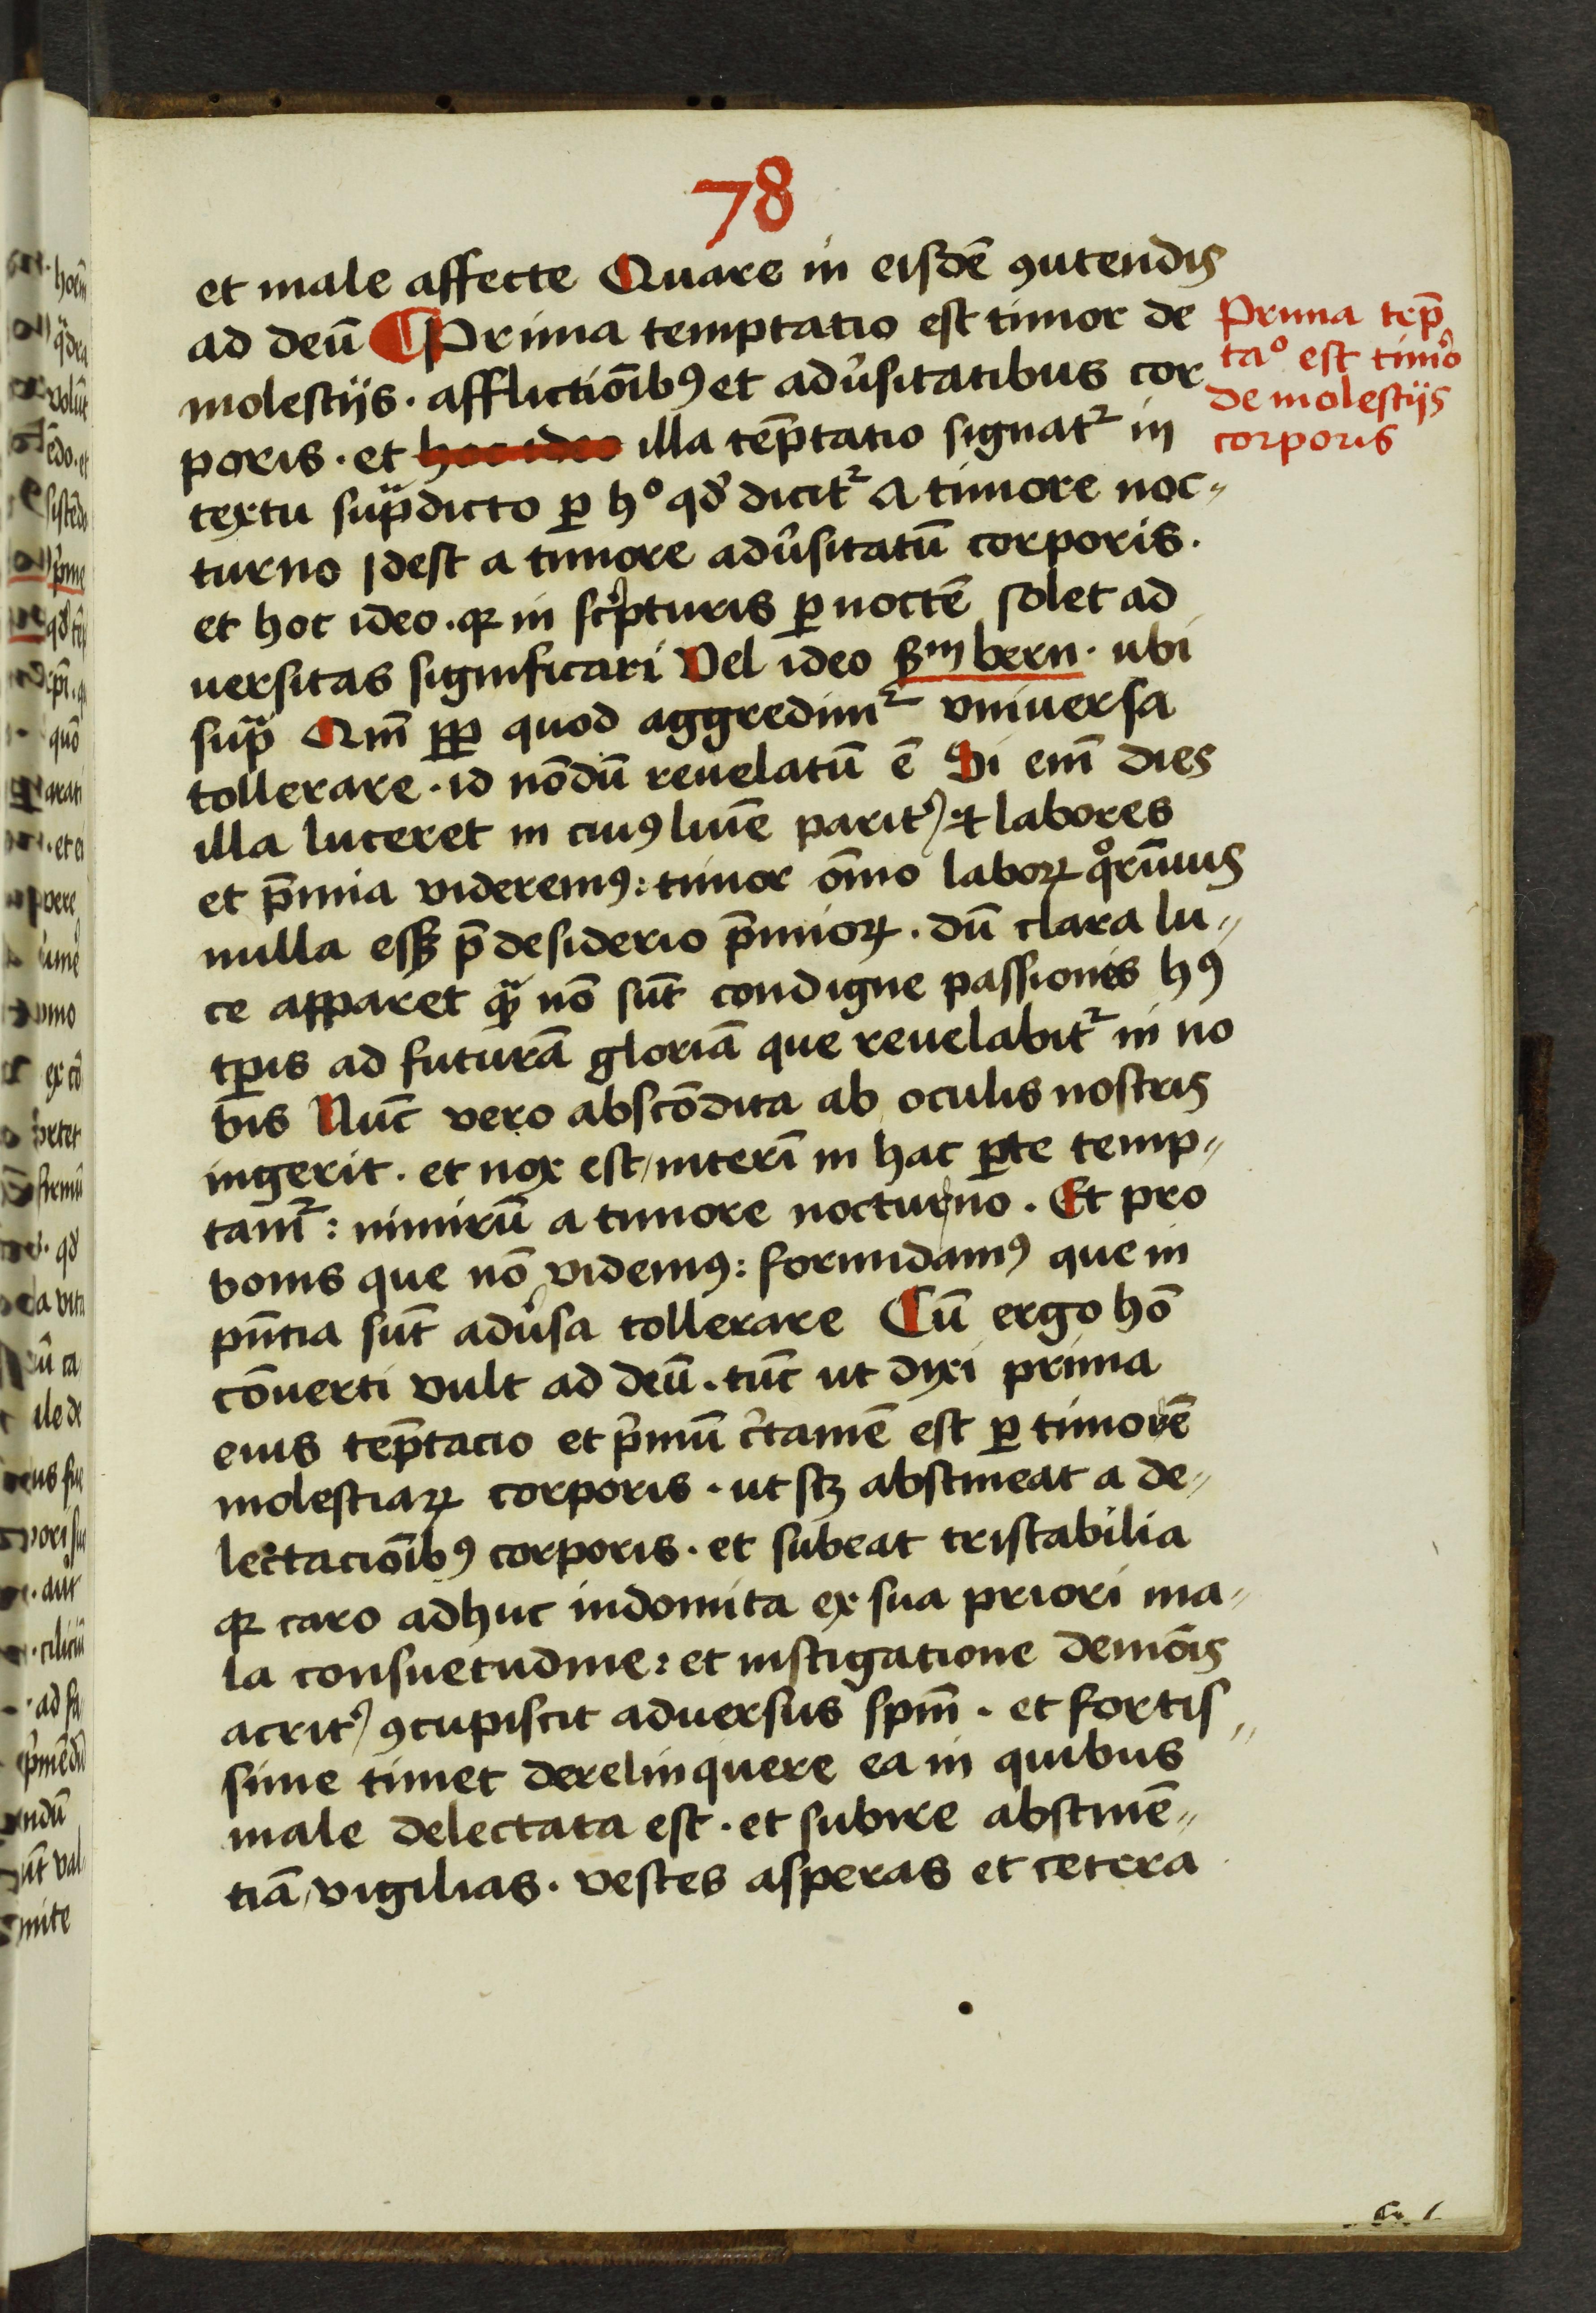 78
et male affecte Quare in eisdē ꝯutendis
ad deū ¶ Prima temptatio est timor de
molestijs · afflictiōibꝰ et adũsitatibus cor
poris · et hoc ideo illa tēptatio signatᷣ in
textu sup̄dicto ꝑ hº qđ dicitᷣ A timore noc-
turno Idest a timore adũsitatū corporis ·
et hoc ideo · qꝛ in scͥpturis ꝑ noctē solet ad
uersitas significari Vel ideo ẜm bern · ubi
supᷓ Qm̄ ꝑꝑ quod aggredimᷣ vniuersa
tollerare · id nōdū reuelatū ē Si em̄ dies
illa luceret in cuiꝰ lumē paritʾ et labores
et p̄mia videremꝰ : timor om̄o laborꝝ
nulla essꝫ p̄ desiderio p̄miorꝝ · dū clara lu-
ce apparet qᷓ nō sūt condigne passiones hꝰ
tꝑis ad futurā gloriā que reuelabitᷣ in no
bis Nūc vero abscōdita ab oculis nostris
ingerit · et nox est / interī in hac ꝑte temp-
tamᷣ : nimirū a timore nocturno · Et pro
bonis que nō videmꝰ : formidamꝰ que in
pn̄tia sūt adũsa tollerare Cū ergo hō
cōuerti vult ad deū · tūc ut dixi prima
eius tēptacio et pͥmū c̾tamē est ꝑ timorē
molestiarꝝ corporis · ut scꝫ abstineat a de-
lectaciōibꝰ corporis · et subeat tristabilia
qꝛ caro adhuc indomita ex sua priori ma-
la consuetudine : et instigatione demōis
acritʾ ꝯcupiscit aduersus sp̄m · et fortis-
sime timet derelinquere ea in quibus
male delectata est · et subire abstinē-
tiā / vigilias · vestes asperas et cetera
Prima tēp
taº est timoʾ
de molestijs
corporis